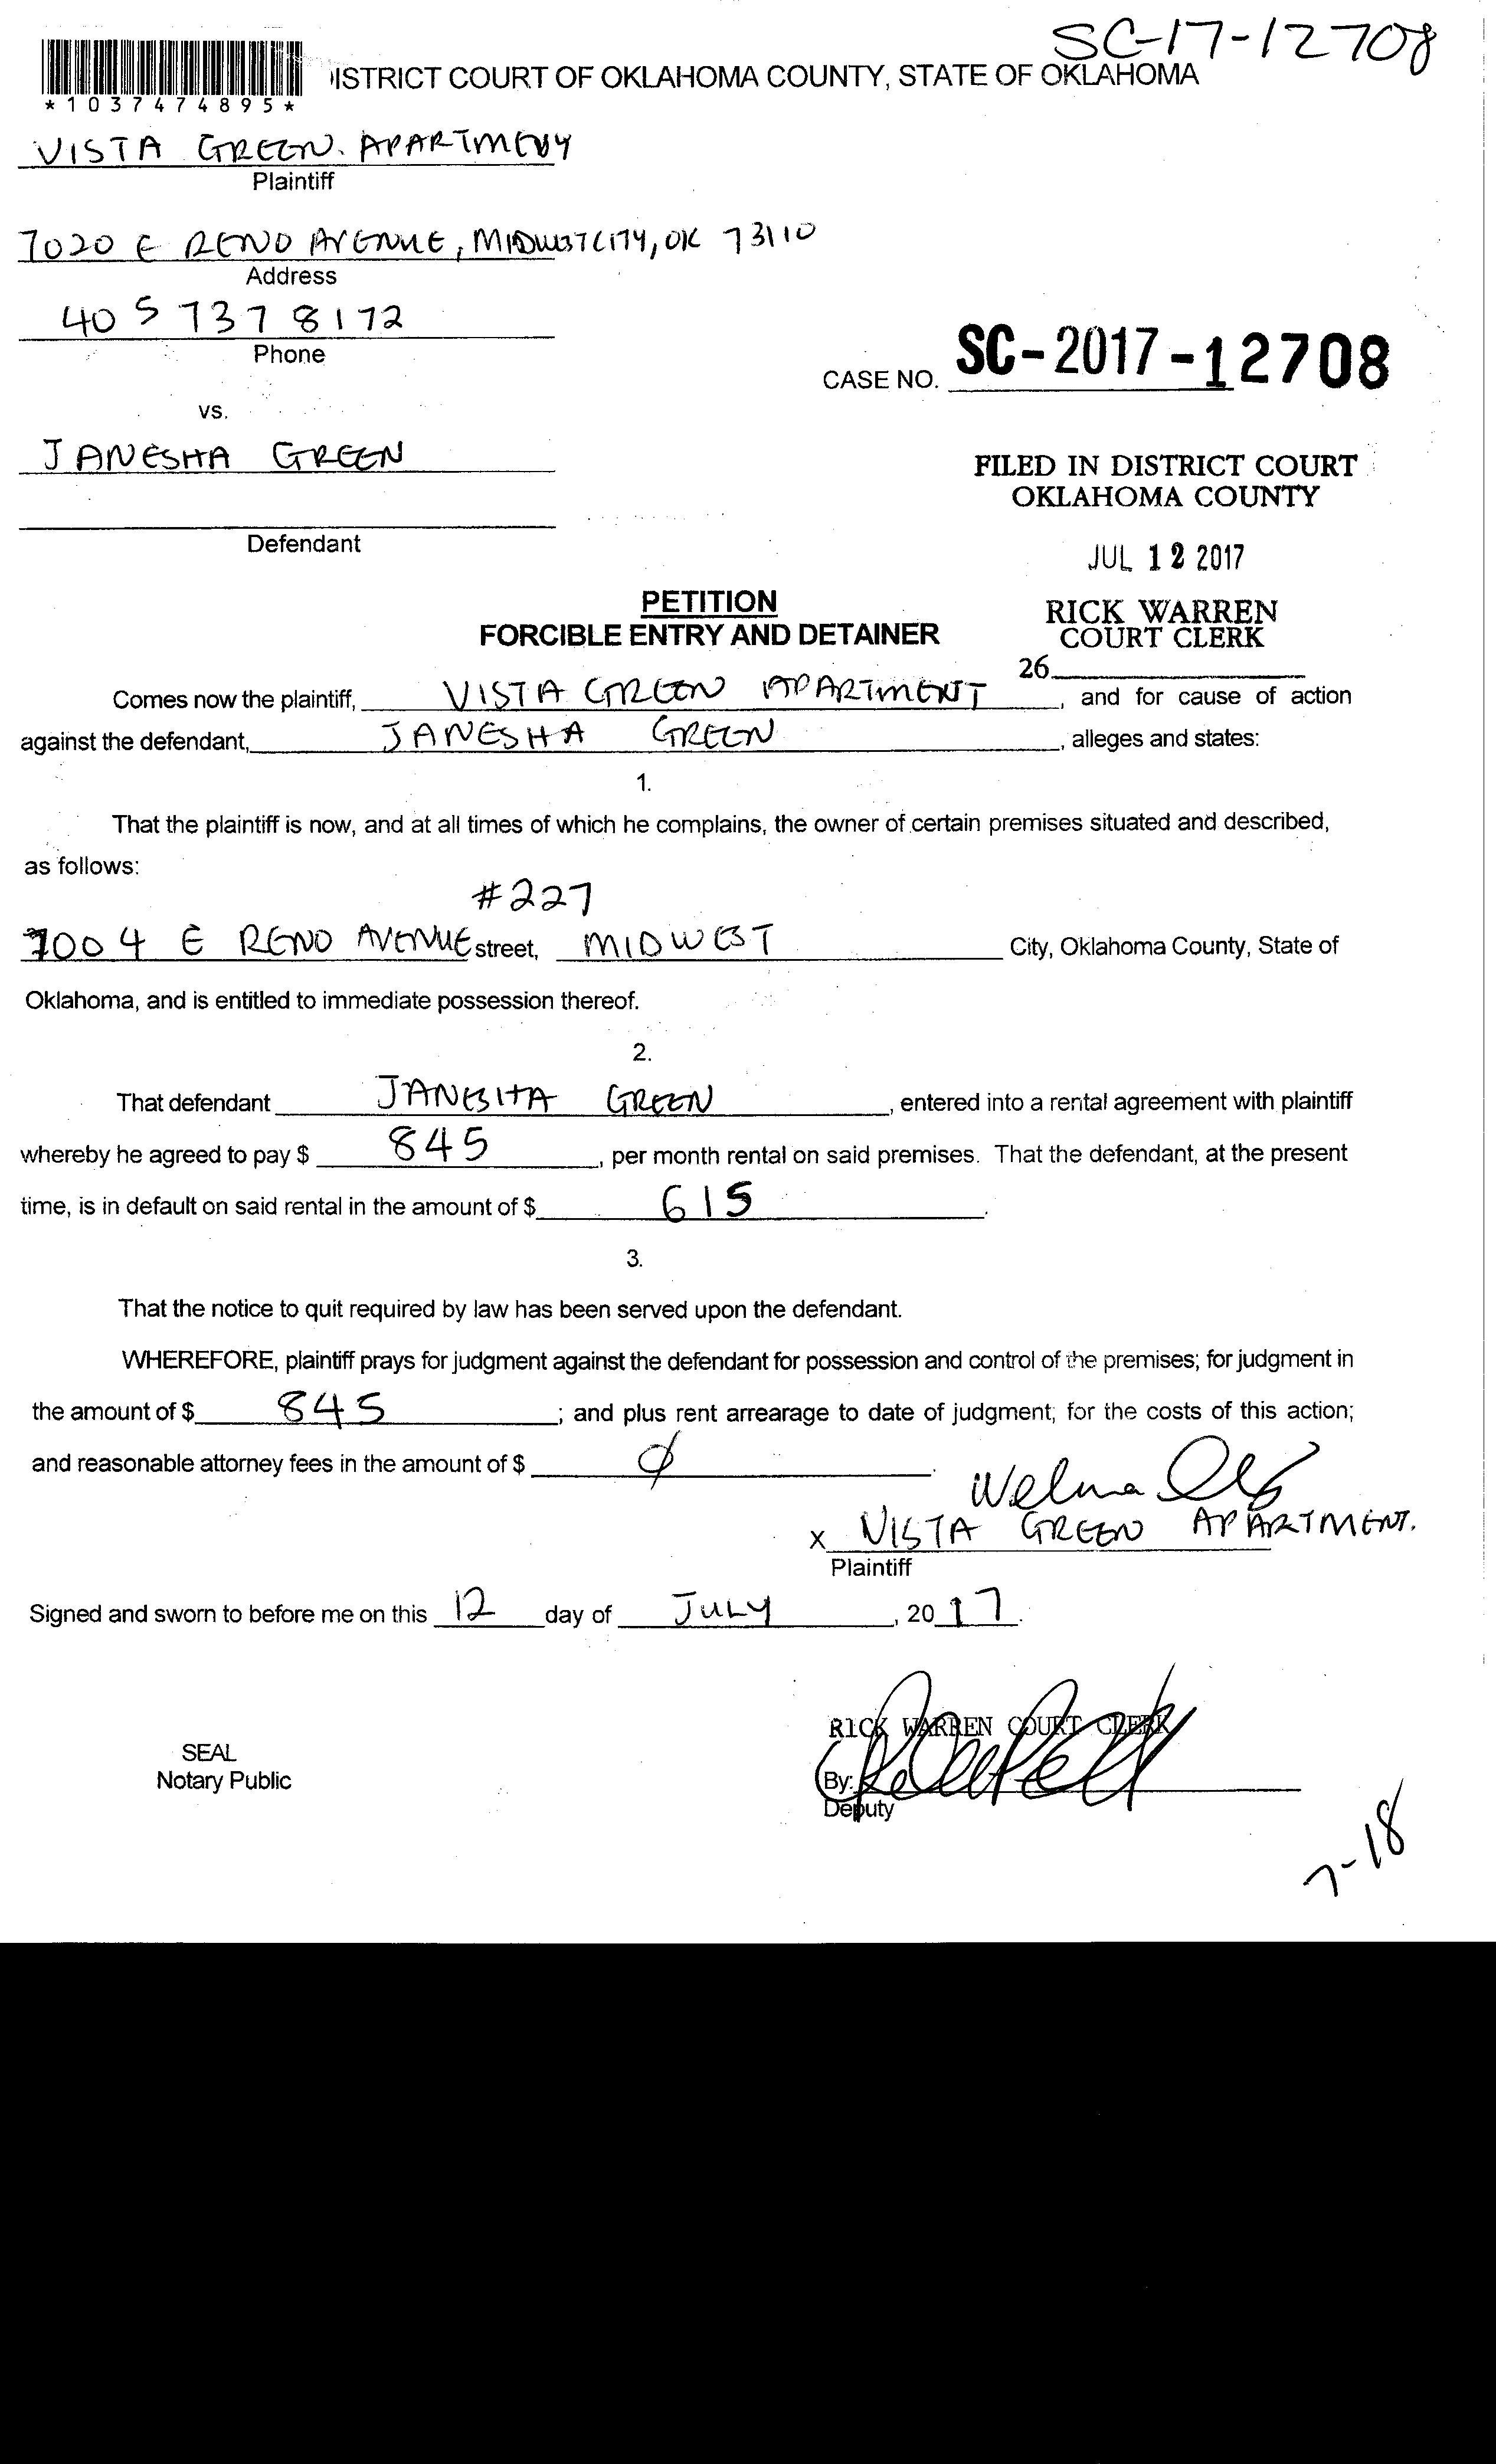 SC-17-12708
ISTRICT COURT OF OKLAHOMA COUNTY, STATE OF OKLAHOMA
*1037474895*
VISTA GREEN APARTMENT
Plaintiff
7020 E RENO AVENUE, MIDWEST CITY, OK 73110
Address
405 737 8172
Phone
CASE NO. SC-2017-12708
vs.
JANESHA GREEN
FILED IN DISTRICT COURT
OKLAHOMA COUNTY
Defendant
JUL 12 2017
PETITION
FORCIBLE ENTRY AND DETAINER
RICK WARREN
COURT CLERK
26
Comes now the plaintiff, VISTA GREEN APARTMENT, and for cause of action
against the defendant, JANESHA GREEN, alleges and states:
1.
That the plaintiff is now, and at all times of which he complains, the owner of certain premises situated and described,
as follows:
#227
7004 E RENO AVENUE street, MIDWEST City, Oklahoma County, State of
Oklahoma, and is entitled to immediate possession thereof.
2.
That defendant JANESHA GREEN, entered into a rental agreement with plaintiff
whereby he agreed to pay $ 845, per month rental on said premises. That the defendant, at the present
time, is in default on said rental in the amount of $ 615.
3.
That the notice to quit required by law has been served upon the defendant.
WHEREFORE, plaintiff prays for judgment against the defendant for possession and control of the premises; for judgment in
the amount of $ 845; and plus rent arrearage to date of judgment; for the costs of this action;
and reasonable attorney fees in the amount of $ ø.
Welma
x VISTA GREEN APARTMENT.
Plaintiff
Signed and sworn to before me on this 12 day of JULY, 2017.
RICK WARREN COURT CLERK
SEAL
Notary Public
By:
Deputy
7-18